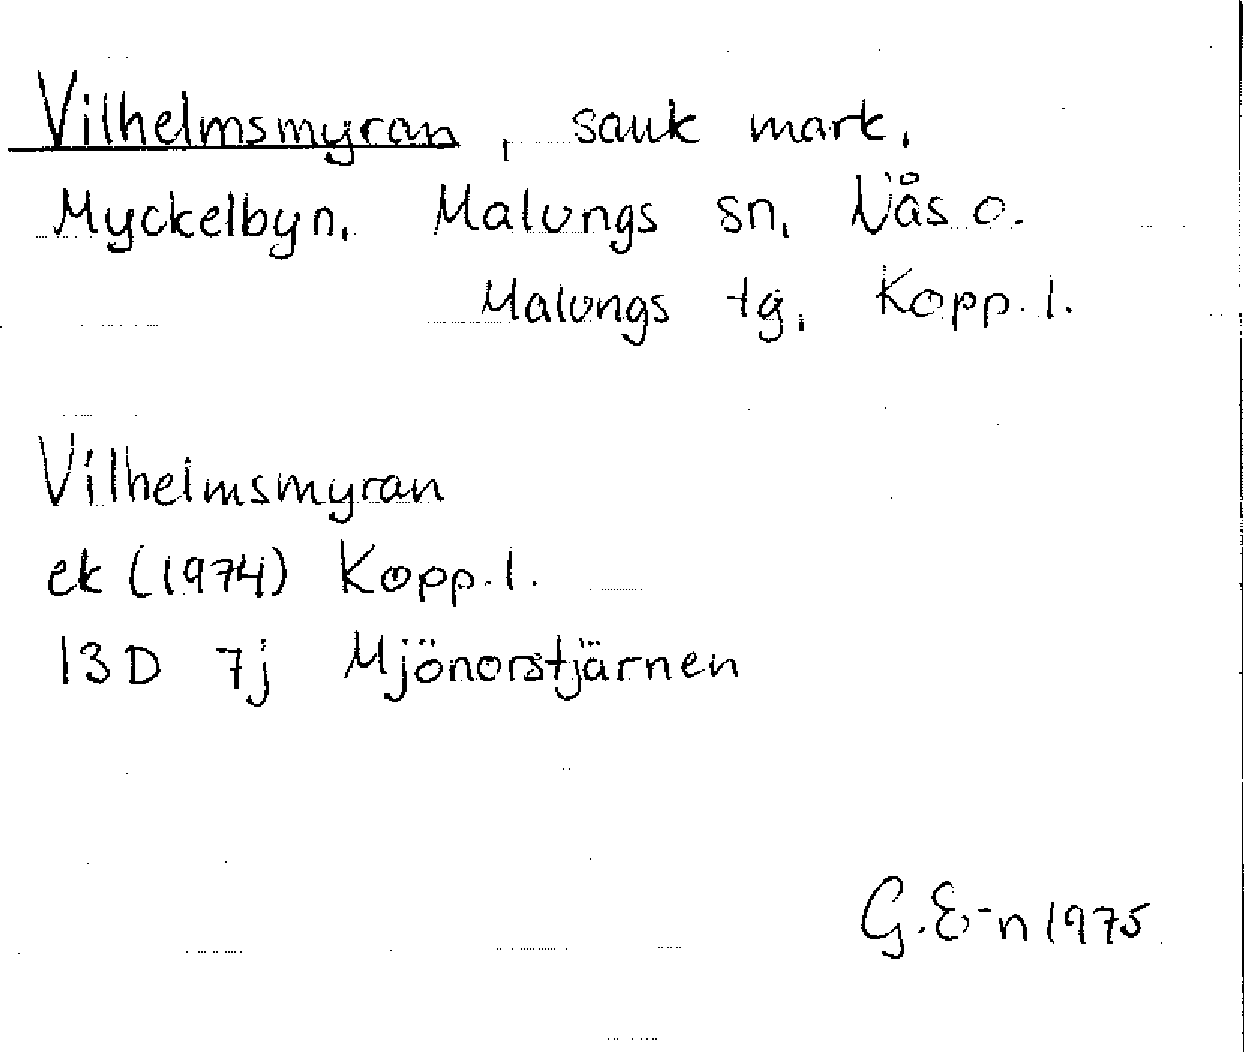 Vilhelmsmyran, sank mark,
Myckelbyn, Malungs sn, Nås o.
Malungs tg, Kopp. l.
Vilhelmsmyran
ek (1974) Kopp. l.
13D 7j Mjönorstjärnen
G.E-n 1975